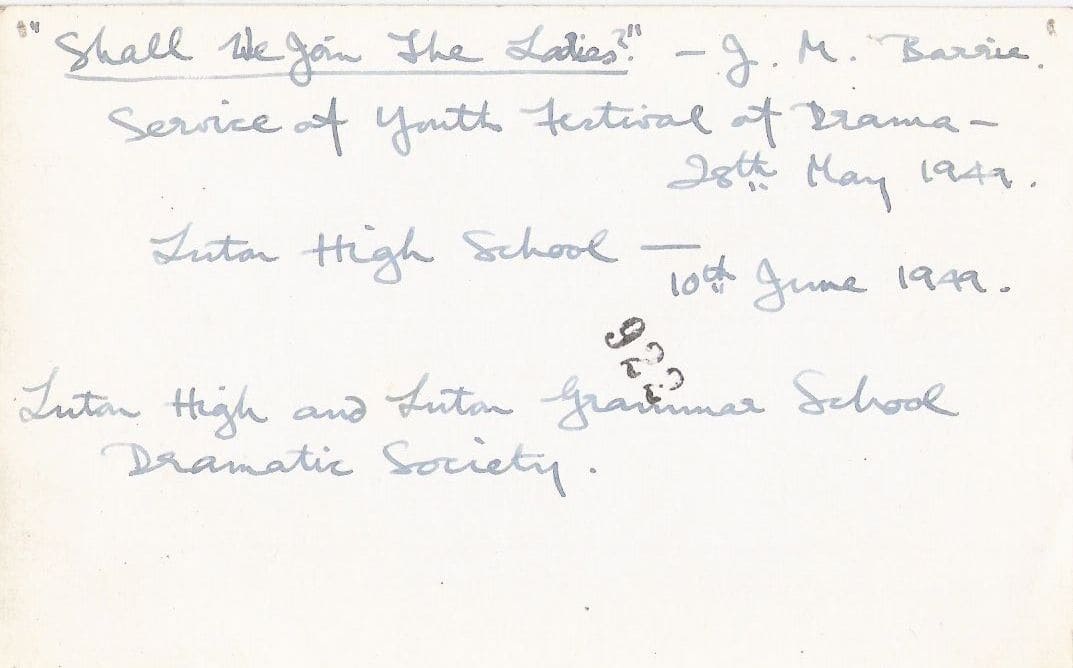 "Shall We Join The Ladies?" - J. M. Barrie.
Service of Youth Festival of Drama -
28th May 1949.
Luton High School -
10th June 1949.
922
Luton High and Luton Grammar School
Dramatic Society.